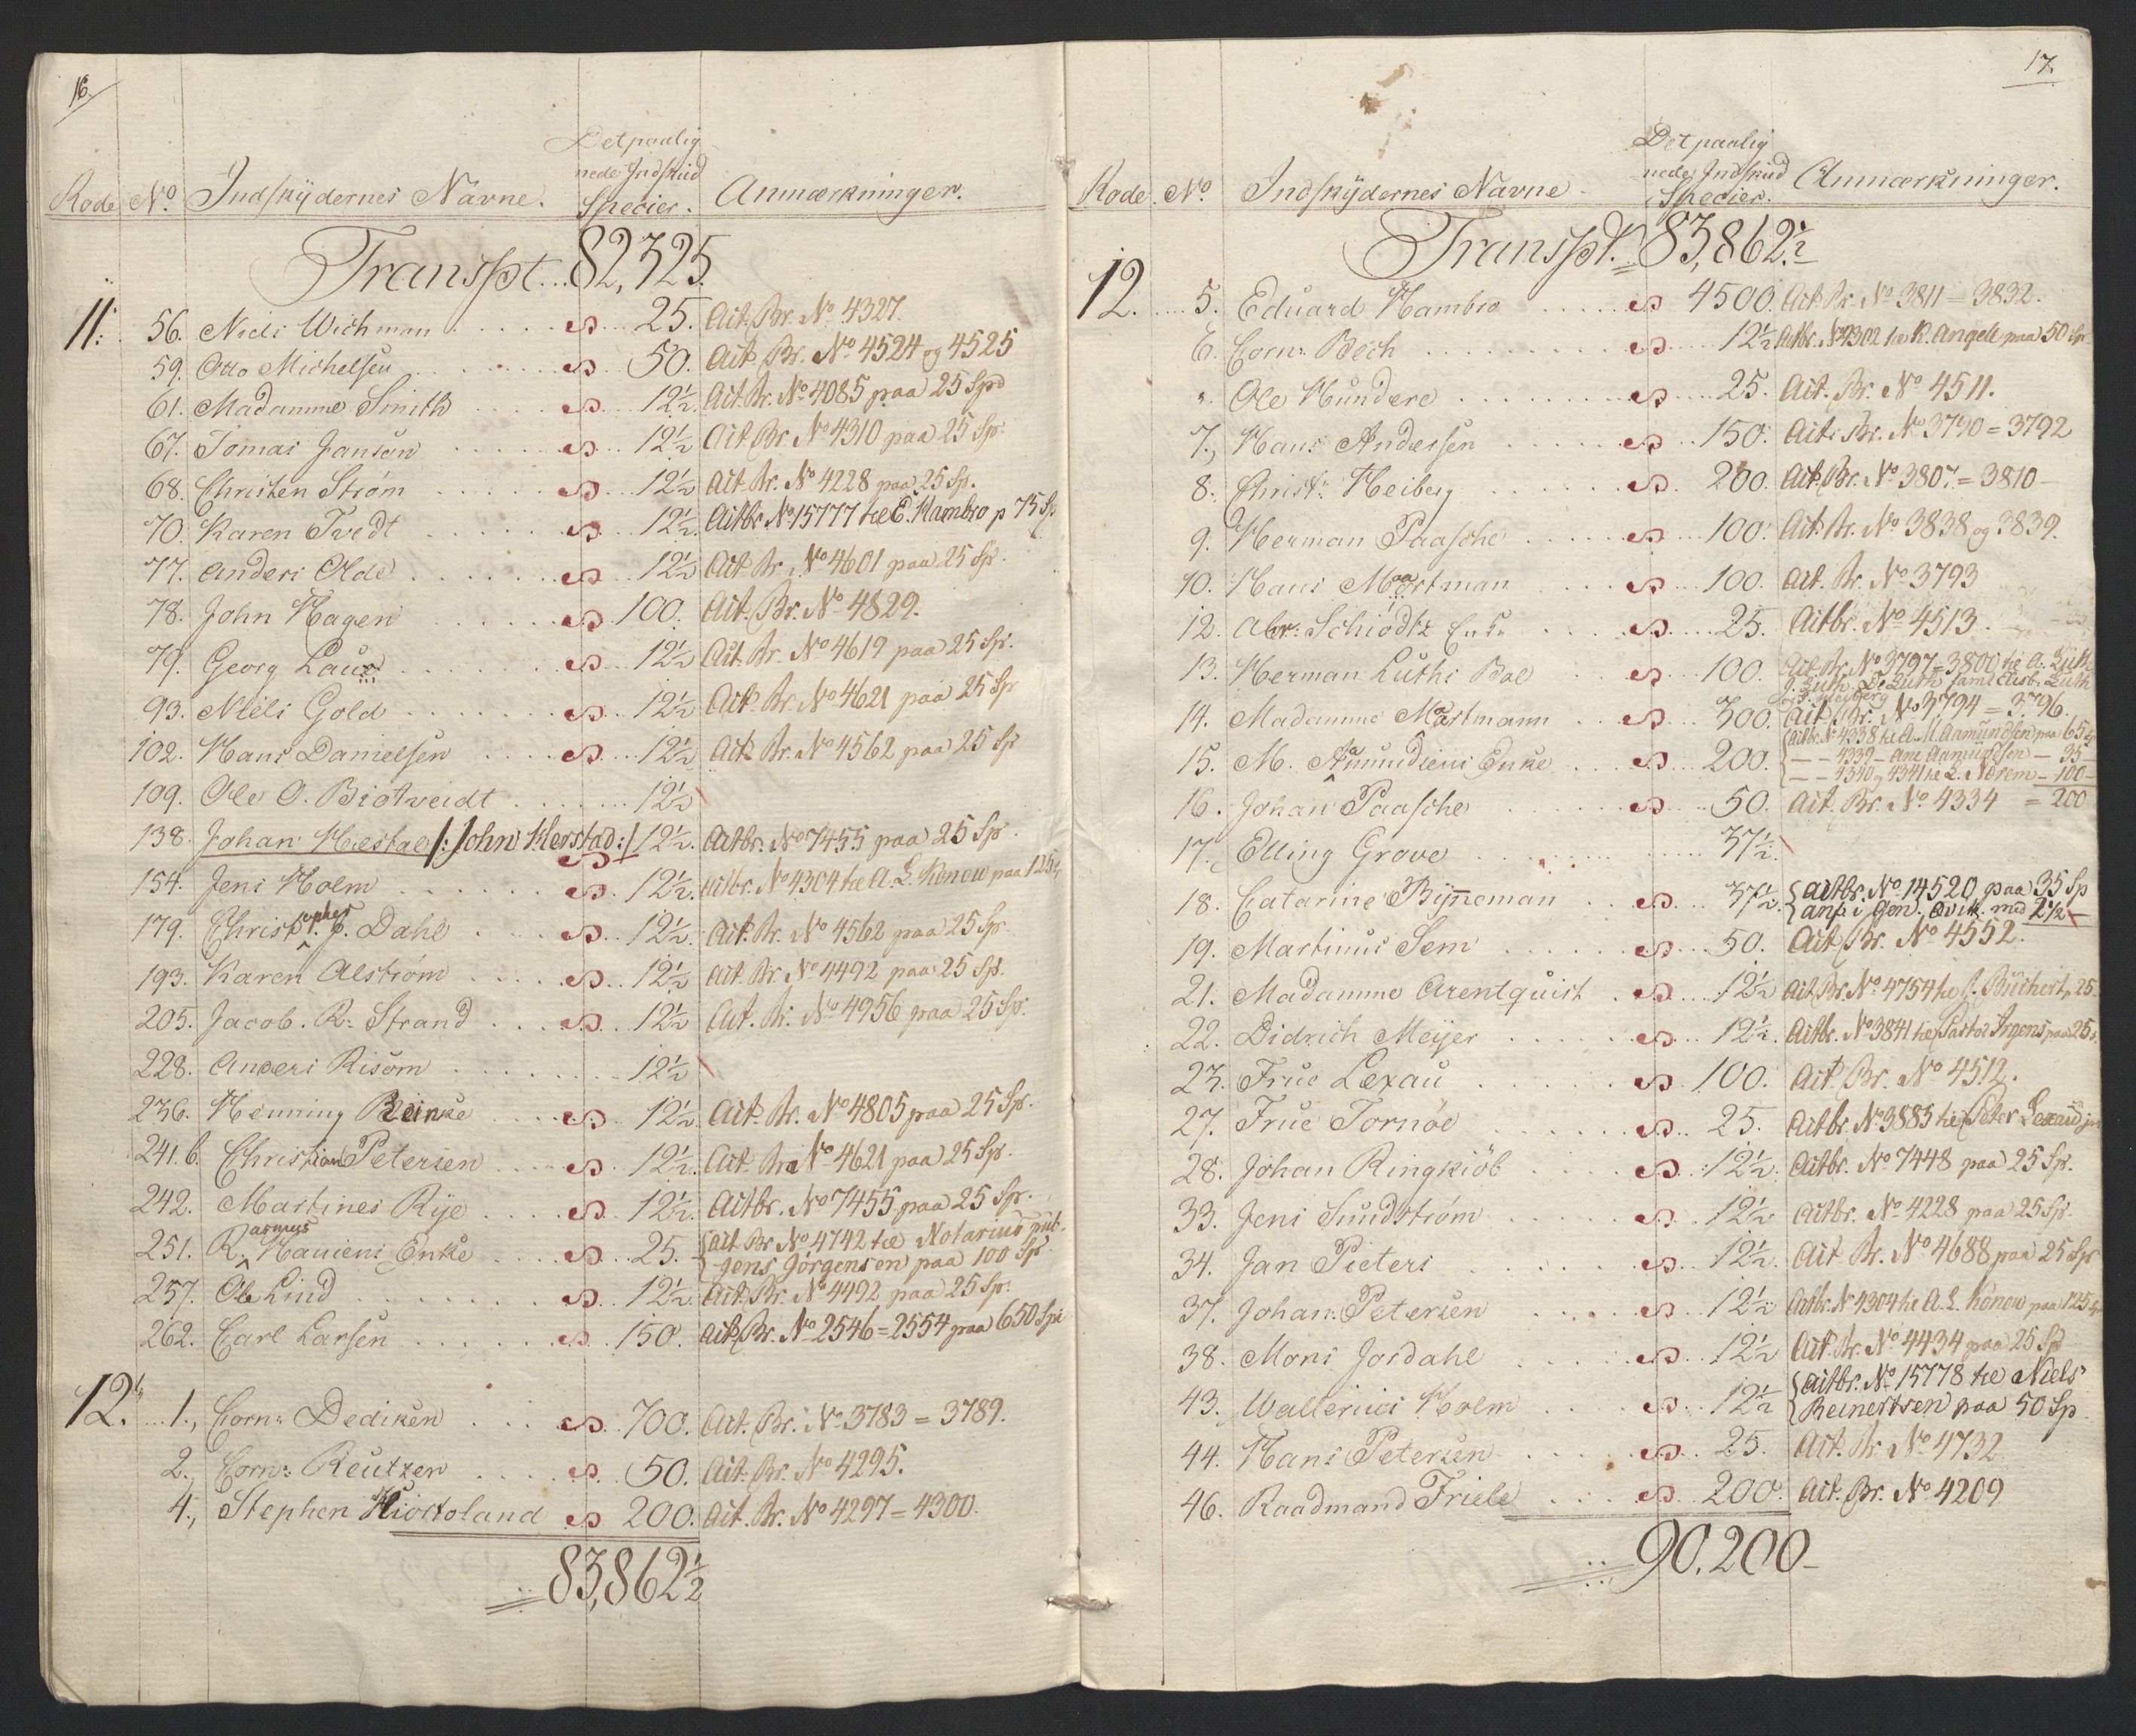 16.
Rode No. Indskydernes Navne. Det paalignede Indskud Species. Anmærkninger.
Transpt. 82,325.
11. 56. Niels Wichman 25. Act. Br. No 4327.
59. Otto Michelsen 50. Act. Br. No 4524 og 4525
61. Madamme Smith 12½ Act. Br. No 4085 paa 25 Spd
67. Tomas Janson 12½ Act Br. No 4310 paa 25 Sp.
68. Christen Strøm 12½ Act. Br. No 4228 paa 25 Sp.
70. Karen Tvedt 12½. Actbr No 15777 til E. Hambro p 75 Sp
77. Anders Olde 12½ Act. Br No 4601 paa 25 Sp.
78. John Hagen 100. Act. Br. No 4829.
79. Georg Laus 12½ Act. Br. No 4619 paa 25 Sp.
93. Niels Gold 12½ Act. Br. No 4621 paa 25 Sp
102. Hans Danielsen 12½ Act. Br. No 4562 paa 25 Sp
109. Ole O. Biotveidt 12½
138. Johan Hestael /: John Herstad :/ 12½. Actbr. No 7455 paa 25 Sp.
154. Jens Holm 12½. Actbr. No 4304 til A. L. Konow paa 125 Sp
179. Christopher J. Dahl 12½. Act. Br. No 4562 paa 25 Sp.
193. Karen Alstrøm 12½ Act. Br. No 4492 paa 25 Sp.
205. Jacob. R. Strand 12½ Act. Br. No 4956 paa 25 Sp.
228. Anders Risom 12½
236. Henning Reinke 12½ Act. Br. No 4805 paa 25 Sp.
241. b. Christian Petersen 12½. Act. Br. No 4621 paa 25 Sp.
242. Martines Rye 12½. Actbr. No 7455 paa 25 Sp.
251. Rasmus Hansens Enke 25. {Act Br No 4742 til Notarius pub.
Jens Jörgensen paa 100 Sp.
257. Ole Lind 12½. Act. Br. No 4492 paa 25 Sp.
262. Carl Larsen 150. Act. Br. No 2546 = 2554 paa 650 Spd
12. 1., Corn: Dediken 700. Act. Br. No 3783 = 3789.
2., Corn: Reutzen 50. Act. Br. No 4295.
4., Stephen Kiostoland 200. Act. Br. No 4297 = 4300.
83,862½
17.
Rode. No. Indskydernes Navne Det paalignede Indskud Species. Anmærkninger.
Transpt. 83,862½
12. 5. Eduard Hambro 4500. Act. Br. No 3811 = 3832.
6. Corn: Bech 12½ Actbr. No 4302 til K. Angell paa 50 Sp
". Ole Hundere 25. Act. Br. No 4511.
7., Hans Andersen 150. Act. Br. No 3790 = 3792
8. Christ: Heiberg 200. Act. Br. No 3807. = 3810
9. Herman Paasche 100. Act. Br. No 3838 og 3839.
10. Hans Maartman 100. Act. Br. No 3793
12. Abr: Schiödtz Enke 25. Actbr. No 4513.
13. Herman Luths Boe 100. Act. Br. No 3797 = 3800 til A. Luth
J. Luth, D. Luth samt Elisb. Luth
14. Madamme Maartmann 300. Act. Br. No 3794 = 3796.
15. M. Aamundsens Enke 200. {Actbr. No 4338 til A. M. Aamundsen paa 65 Sp
— — 4339 – Ane Aamundsen — 35 –
— — 4340 og 4341 til L. Nerem – 100 –
16. Johan Paasche 50. Act. Br. No 4334 = 200
17. Elling Grove 37½.
18. Catarine Bynneman 37½. {Actbr. No 14520 paa 35 Sp
anf. i Gen. Qvit. med 2½ —
19. Martinus Sem 50. Act. Br. No 4552.
21. Madamme Arentquist 12½ Act. Br. No 4754 til J. Büchert, 25
22. Didrich Meyer 12½. Actbr. No 3841 til Pastor Irgens paa 25 S.
23. Frue Lexau 100. Act. Br. No 4512.
27. Frue Tornöe 25. Actbr. No 3885 til Peter Lexau jr
28. Johan Ringkiöb 12½. Actbr. No 7448 paa 25 Sp.
33. Jens Sundstrøm 12½ Actbr. No 4228 paa 25 Sp.
34. Jan Pieters 12½. Act. Br. No 4688 paa 25 Sp
37. Johan: Petersen 12½ Actbr. No 4304 til A. L. Konow paa 125 Sp
38. Mons Jordahl 12½ Act. Br. No 4434 paa 25 Sp
43. Wallerius Holm 12½ {Actbr. No 15778 til Niels
Reinertsen paa 50 Sp.
44. Hans Petersen 25. Act. Br No 4732
46. Raadmand Friele 200. Act. Br. No 4209
90.200